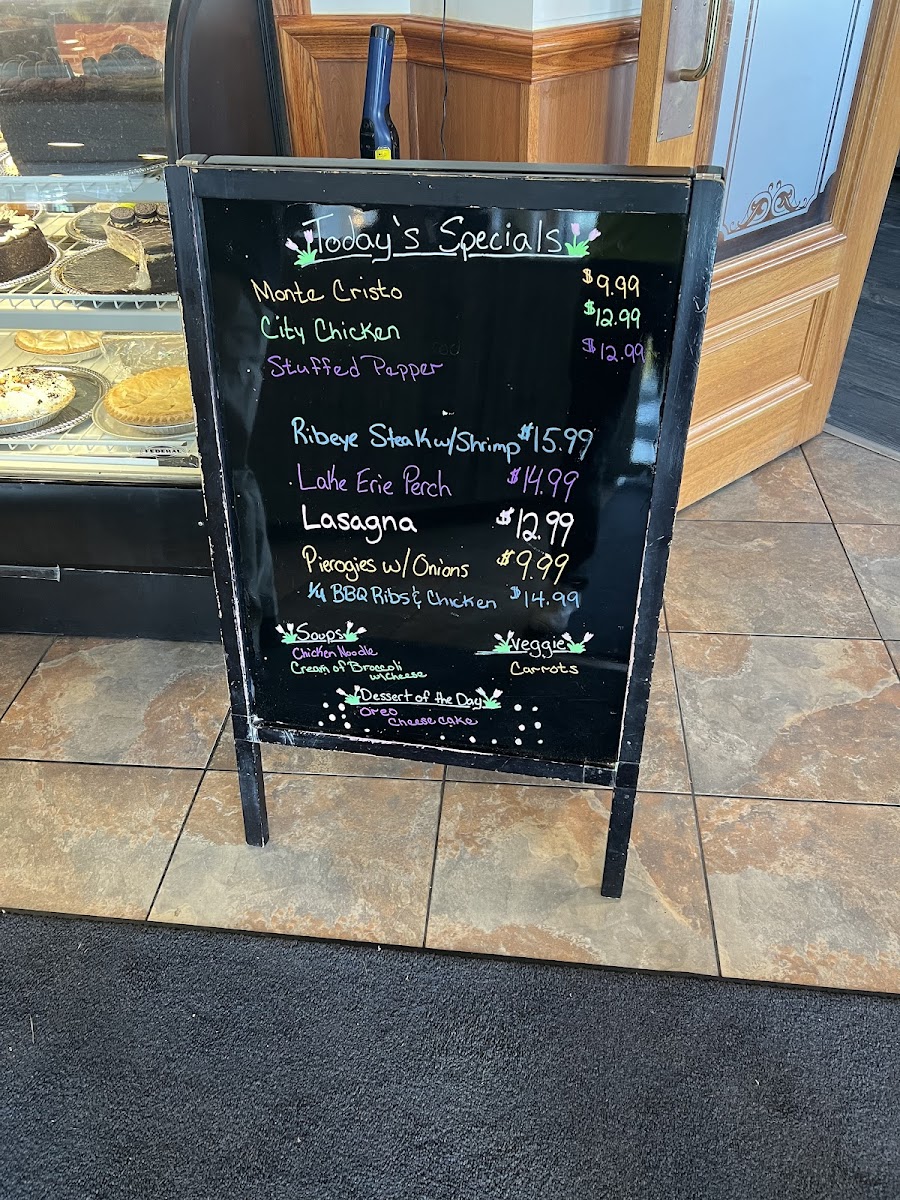 Today's Specials
Monte Cristo $9.99
City Chicken $12.99
Stuffed Pepper $12.99
Ribeye Steak w/Shrimp $15.99
Lake Erie Perch $14.99
Lasagna $12.99
Pierogies w/Onions $9.99
1/4 BBQ Ribs & Chicken $14.99
Soups
Chicken Noodle
Cream of Broccoli
w/cheese
Veggie
Carrots
Dessert of the Day
Oreo
Cheese cake
FEDERAL